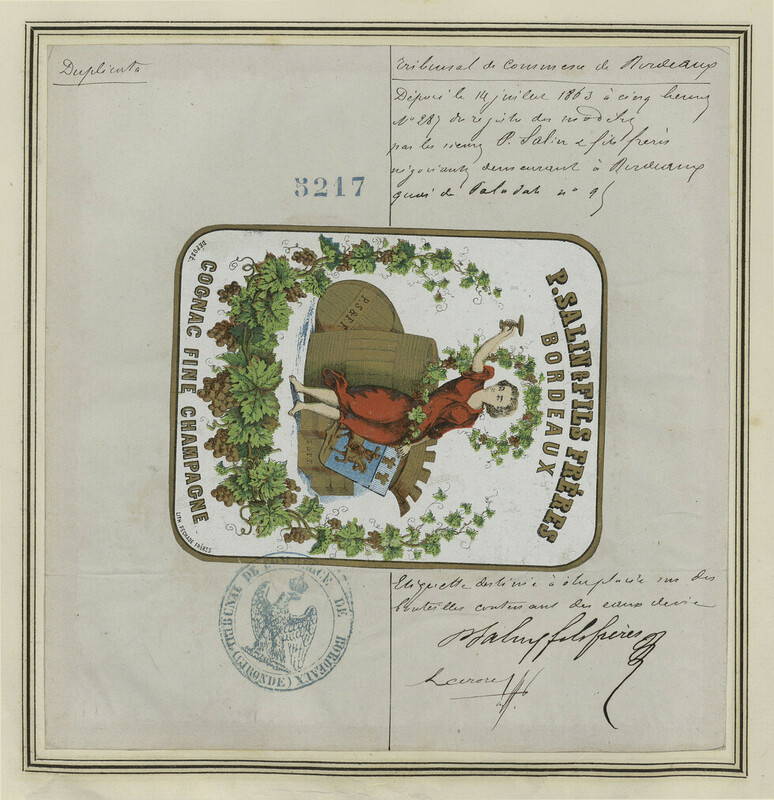 Duplicata
Tribunal de Commerce de Bordeaux
Déposé le 14 juillet 1863 à cinq heures
N° 287 du registre des modèles
par les sieurs P. Salin & fils frères
négociants demeurant à Bordeaux
quai de Paludate n° 95
5217
P. SALIN & FILS FRÈRES
BORDEAUX
P.S & F.F
COGNAC FINE CHAMPAGNE
DÉPOSÉ.
LITH. PECHADE FRÈRES
TRIBUNAL DE COMMERCE DE BORDEAUX
(GIRONDE)
Etiquette destinée à être placée sur des
bouteilles contenant des eaux de vie
P Salin & fils frères